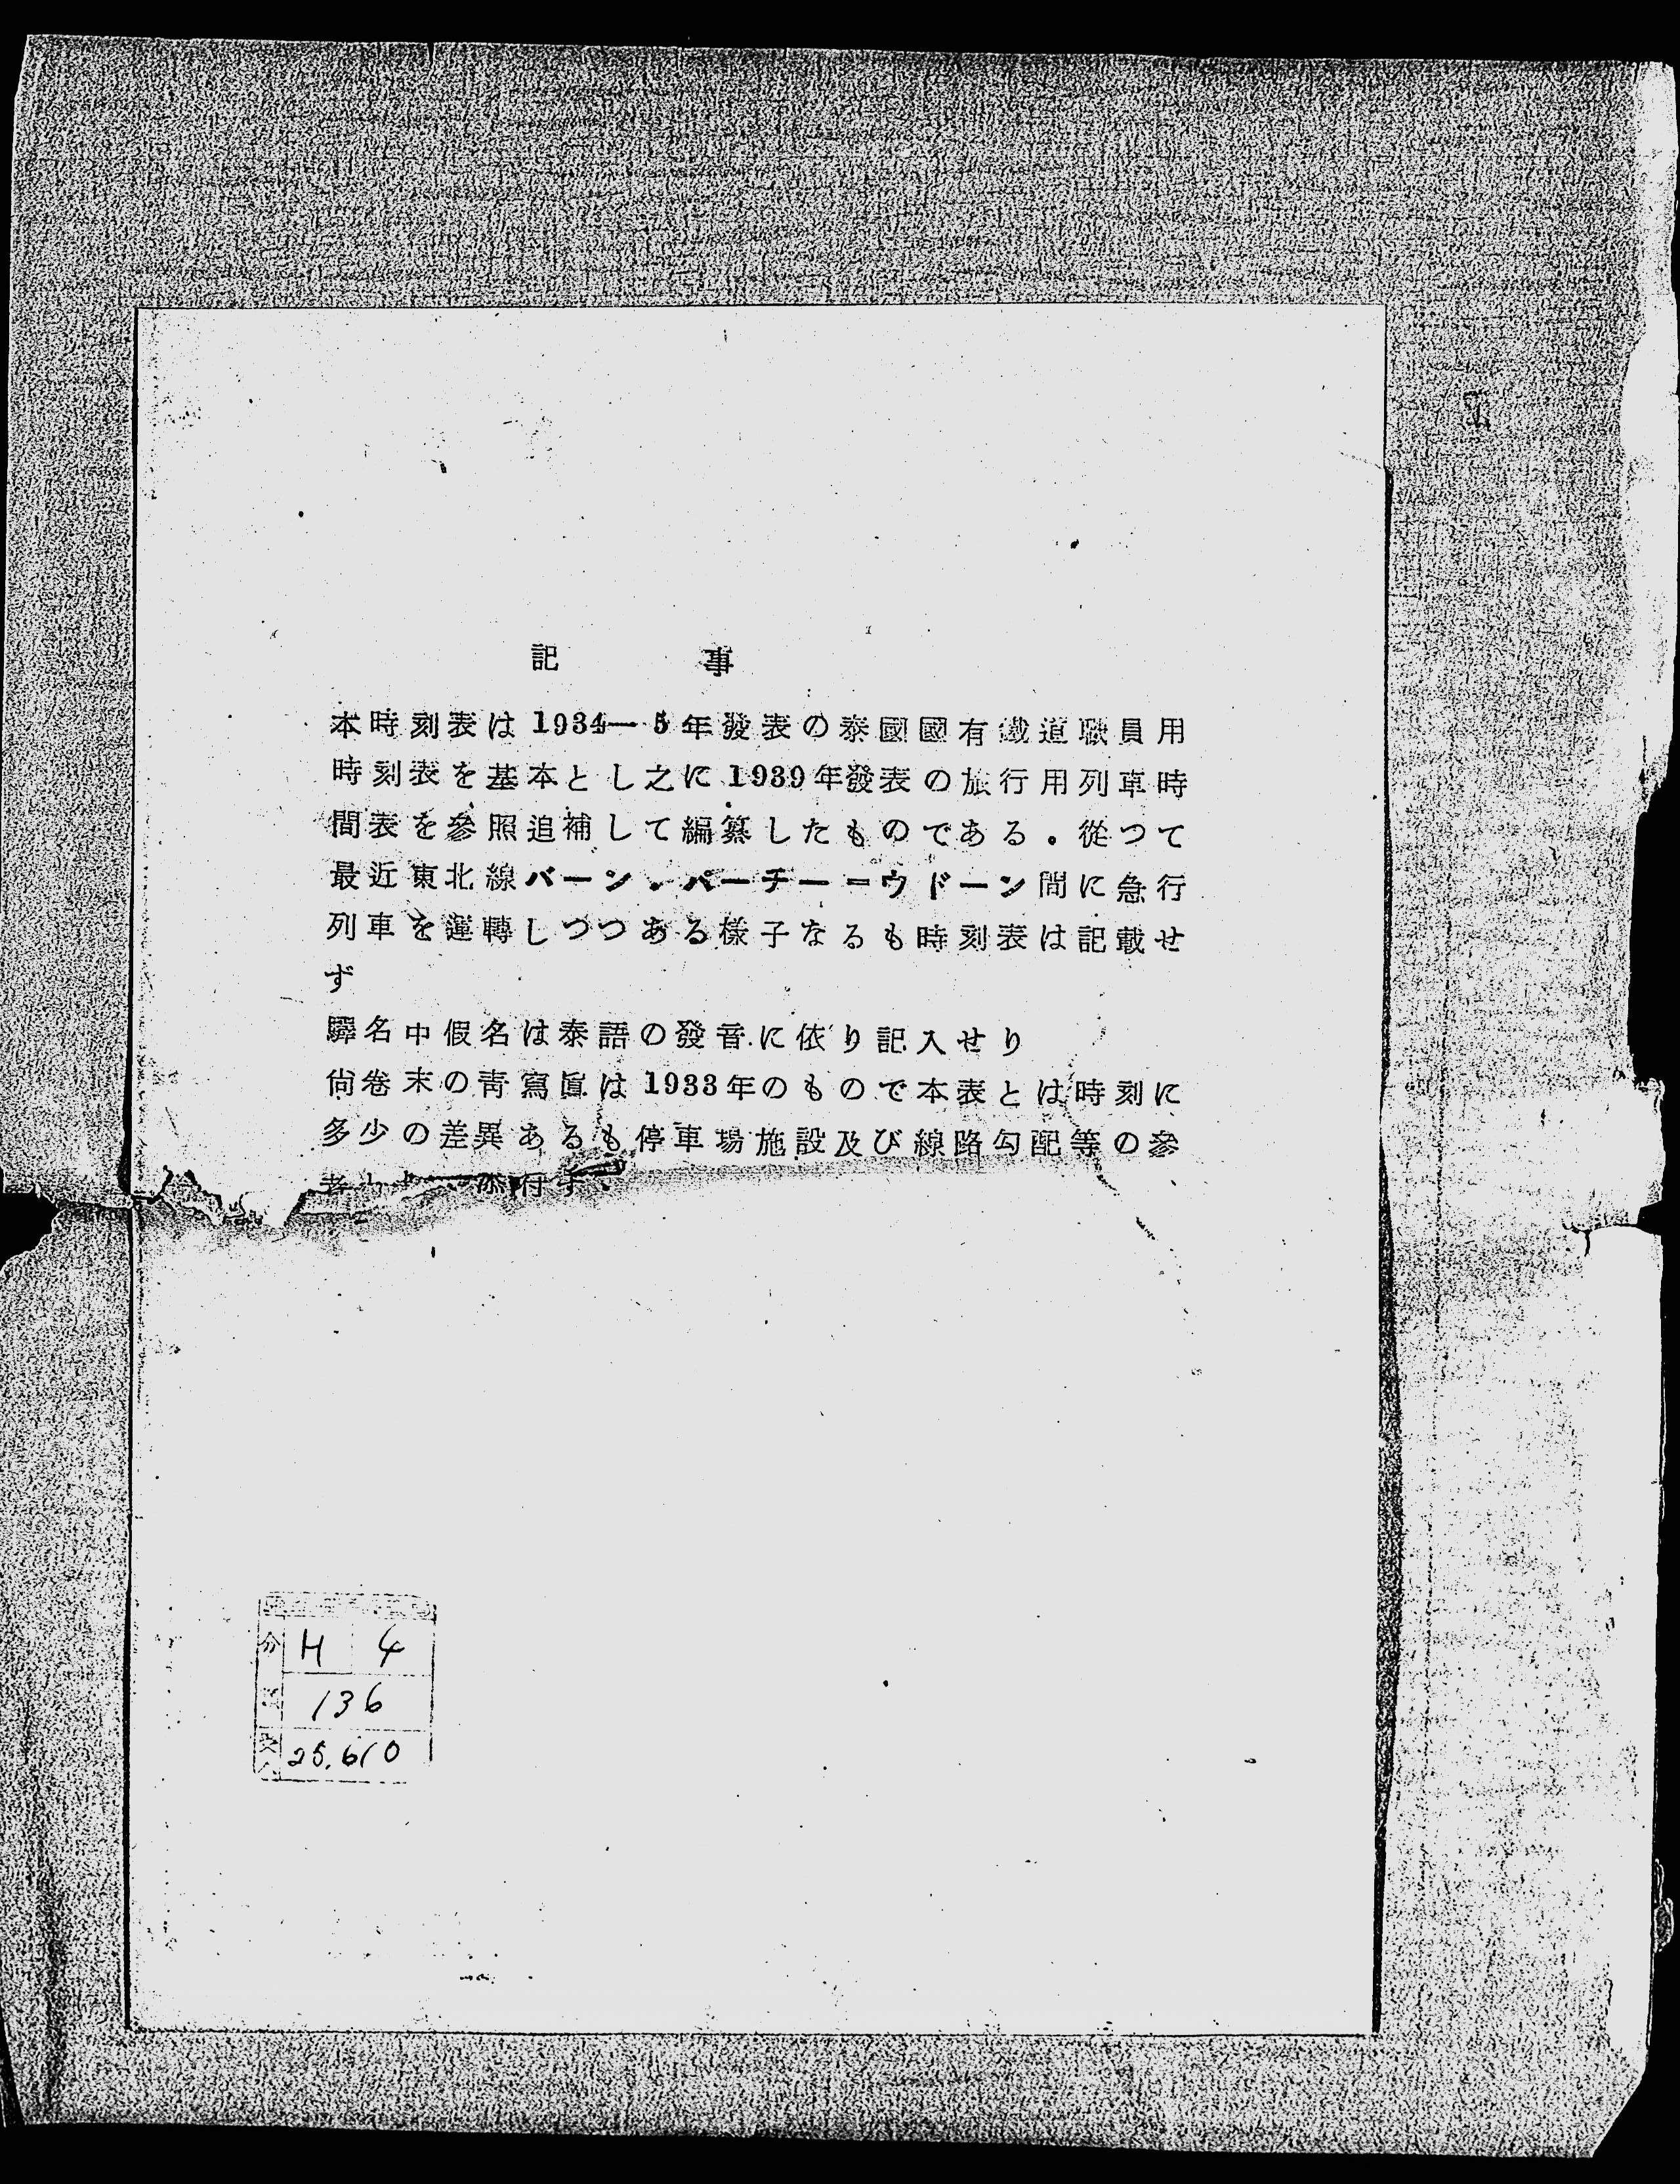 記 事
本時刻表は1934—5年發表の泰國國有鐵道職員用
時刻表を基本とし之に1939年發表の旅行用列車時
間表を參照追補して編纂したものである。從つて
最近東北線バーン、パーチー＝ウドーン間に急行
列車を運轉しつつある樣子なるも時刻表は記載せ
ず
驛名中假名は泰語の發音に依り記入せり
尙卷末の靑寫眞は1933年のもので本表とは時刻に
多少の差異あるも停車場施設及び線路勾配等の參
考 添付す
分 H 4
136
25.610